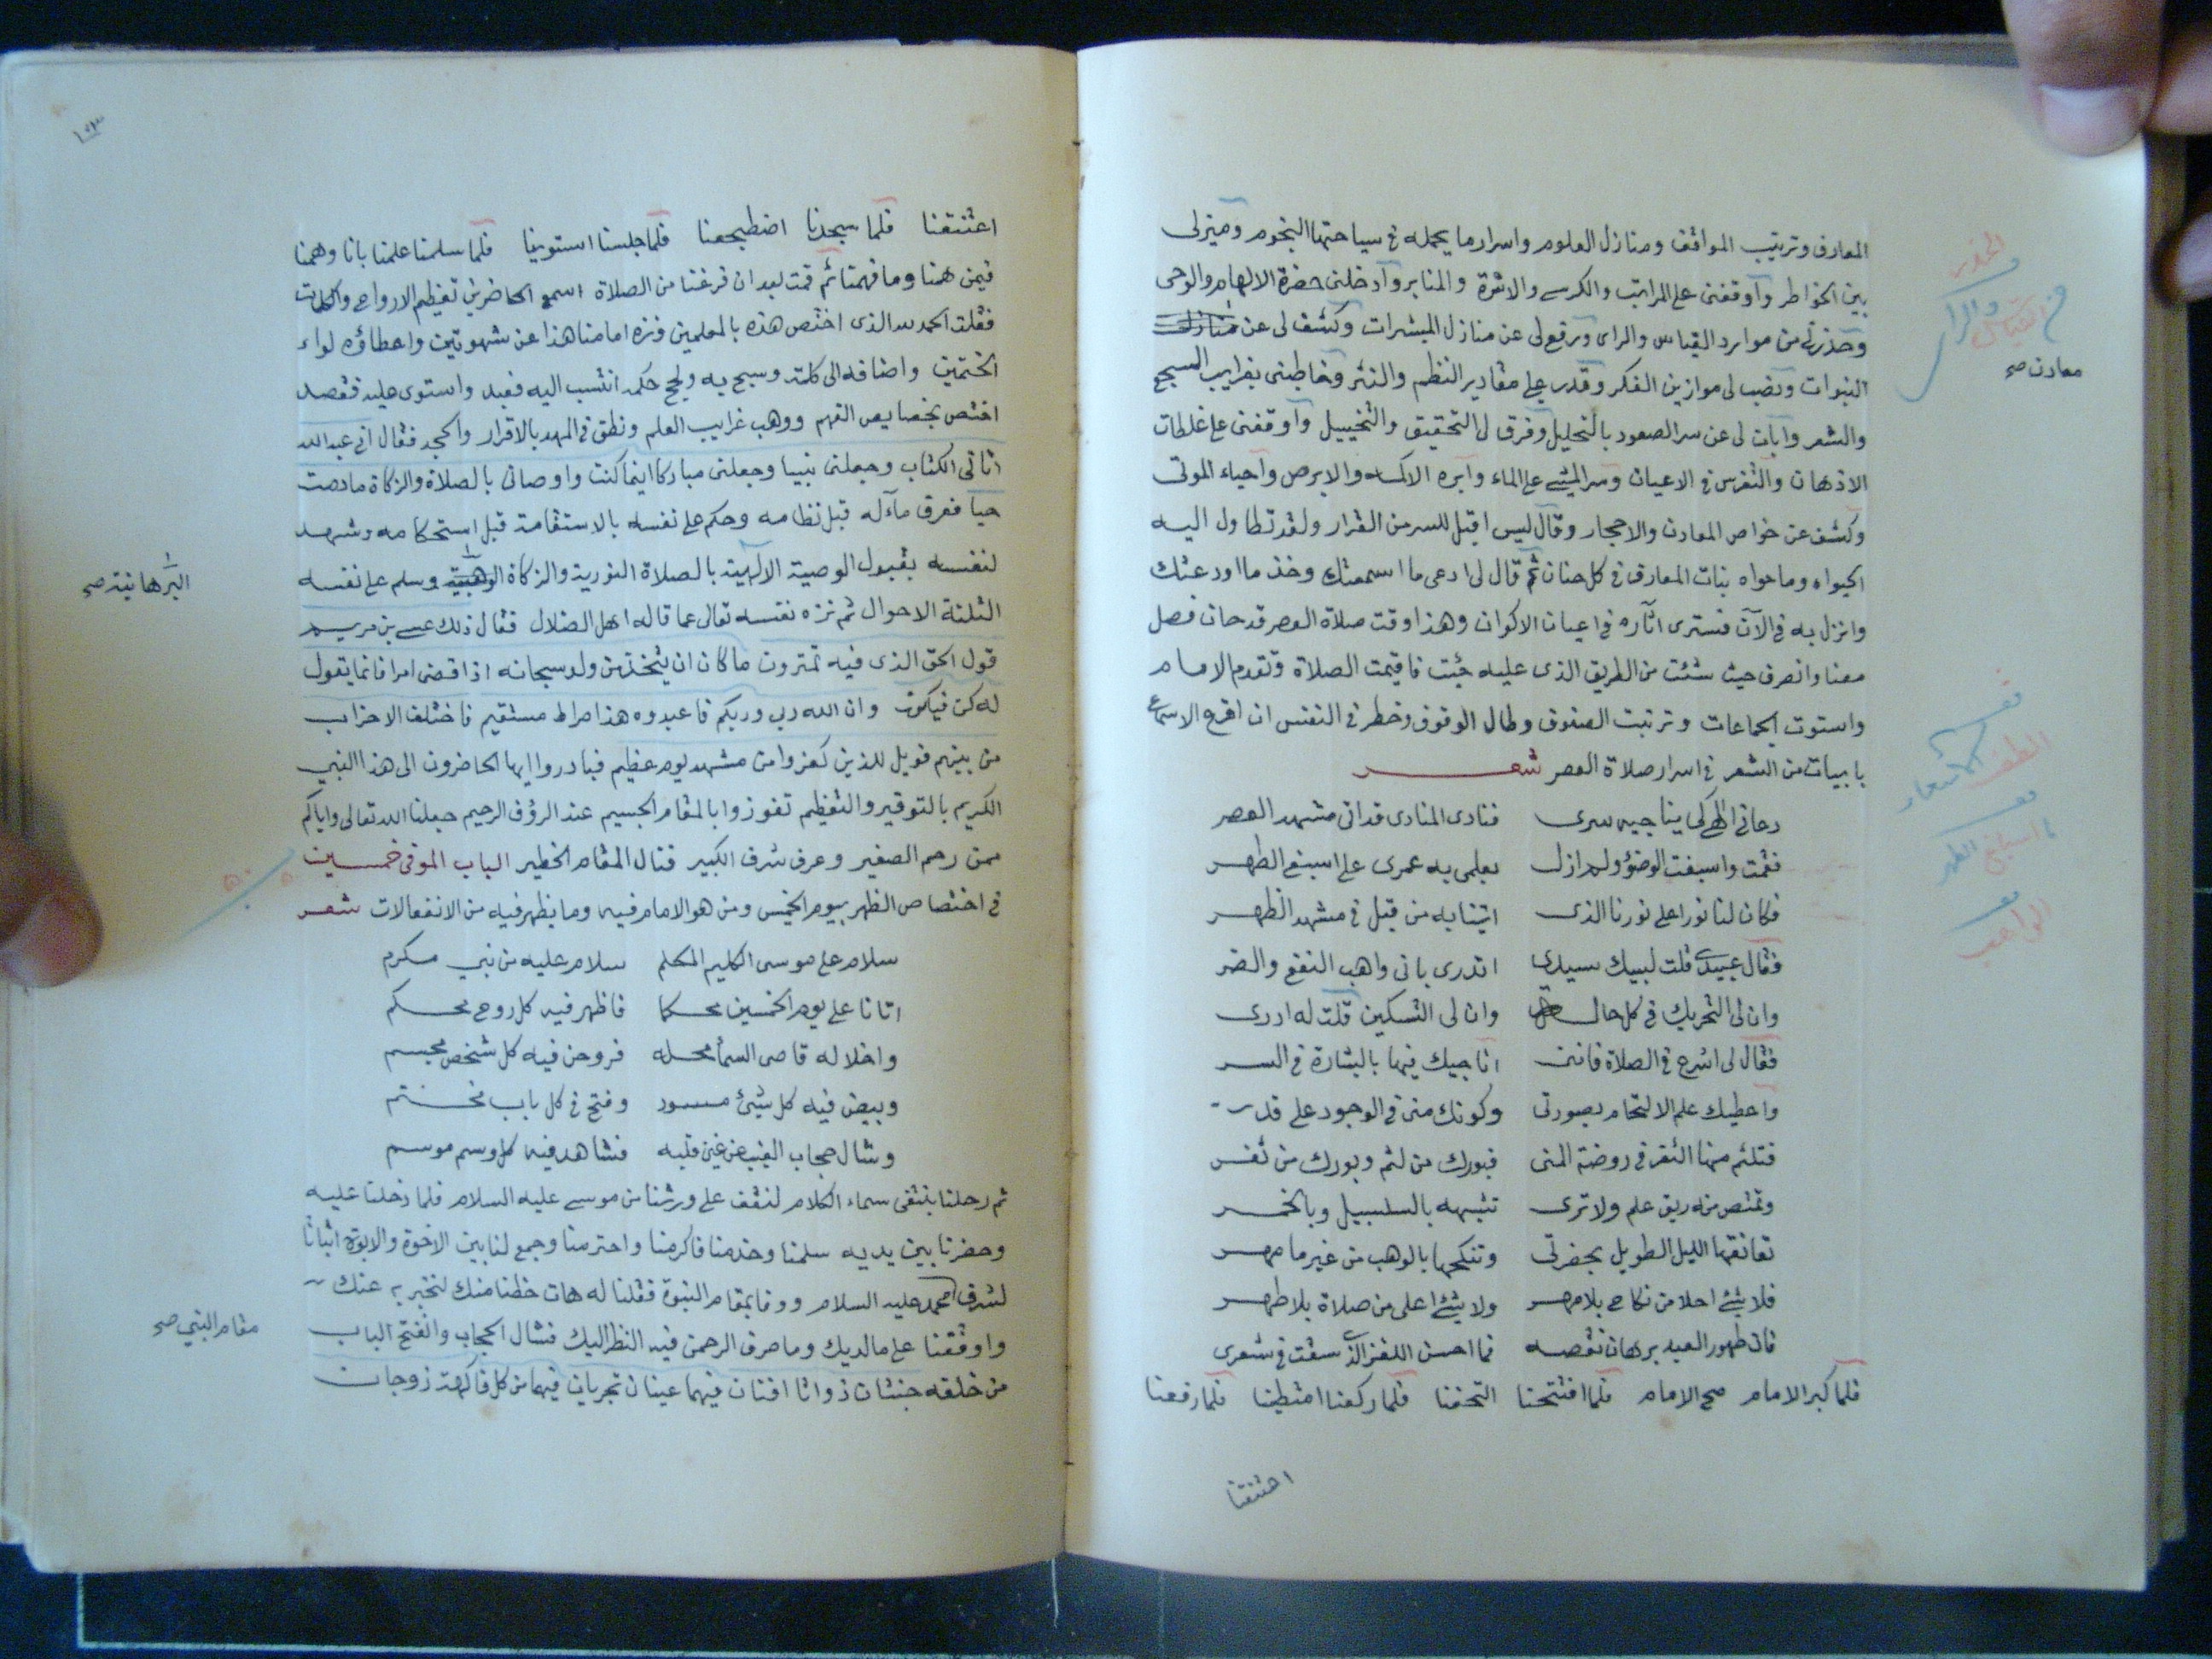 المعارف وترتيب المواقف ومنازل العلوم واسرار ما يحمله في سياحتها النجوم وميز لي
بين الخواطر وأوقفني على المراتب والكرسي والاسرة والمنابر وأدخلني حضرة الالهام والوحى
وحذرني من موارد القياس والراى ورفع لى عن منازل المبشرات وكشف لى عن
معادن صح
النبوات ونصب لى موازين الفكر وقدر على مقادير النظم والنثر وخاطبنى بغرايب السجع
والشعر وأبان لى عن سر الصعود بالتحليل وفرق لى التحقيق والتخييل وأوقفنى على غلطات
الاذهان والتفرس في الاعيان وسر المشي على الماء وابره الاكمه والابرص واحياء الموتى
وكشف عن خواص المعادن والاحجار وقال ليس اقبل للسر من القرار ولقد تطاول اليه
الحيوان وما حواه بنات المعارف في كل جنان ثم قال لى ادعى ما اسمعتك وخذ ما اودعتك
وانزل به في الآن فسترى آثاره في اعيان الاكوان وهذا وقت صلاة العصر قد حان فصل
معنا وانصرف حيث شئت من الطريق الذى عليه جئت فاقيمت الصلاة وتقدم الامام
واستوت الجماعات وترتبت الصفوف وطال الوقوف وخطر في النفس ان اقرع الاسماع
بابيات من الشعر في اسرار صلاة العصر شعر
دعانى الهي كى يناجيه سرى فنادى المنادى قد اتى مشهد العصر
فقمت واسبغت الوضؤ ولم ازل بعلمى به عمرى على اسبغ الطهر
فكان لنا نورا على نورنا الذى اتينا به من قبل في مشهد الظهر
فقال عبيدي قلت لبيك سيدى اتدرى بانى واهب النفع والضر
وان لى التحريك في كل حال وان لى التسكين قلت له ادرى
فقال لى اشرع في الصلاة فاننى اناجيك فيها بالبشارة في السر
واعطيك علم الالتحام بصورتى وكونك منى في الوجود على قدر
فتلثم منها الثغر في روضة المنى فبورك من لثم وبورك من ثغر
وتمتص منه ريق علم ولا ترى تشبهه بالسلسبيل وبالخمر
تعانقها الليل الطويل بحضرتى وتنكحها بالوهب من غير ما مهر
فلا شئ احلا من نكاح بلا مهر ولا شئ اعلى من صلاة بلا طهر
فان طهور العبد برهان نقصه فما احسن اللغز الذى سقت في شعرى
فلما كبر الامام صح الامام فلما افتتحنا التحفنا فلما ركعنا امتطينا فلما رفعنا
اعتنقنا
١٥٣
اعتنقنا فلما سجدنا اضطجعنا فلما جلسنا استوينا فلما سلمنا علمنا بانا وهمنا
فيمن همنا وما فهمنا ثم قمت بعد ان فرغنا من الصلاة اسمع الحاضرين تعظيم الارواح والكلمات
فقلت الحمد لله الذى اختص هذه بالمعلمين ونزه امامنا هذا عن شهوتين واعطاؤه لواء
الختمين واضافه الى كلمته وسبح به ولحج حكمه انتسب اليه فعبد واستوى عليه فقصد
اختص بخصايص الفهم ووهب غرايب العلم ونطق في المهد بالاقرار والجحد فقال انى عبد الله
اتانى الكتاب وجعلنى نبيا وجعلنى مباركا اينما كنت واوصانى بالصلاة والزكاة ما دمت
حيا فعرف مآله قبل نظامه وحكم على نفسه بالاستقامة قبل استحكامه وشهد
لنفسه بقبول الوصية الالهية بالصلاة النورية والزكاة وسلم على نفسه
البرهانية صح
الثلثة الاحوال ثم نزه نفسه تعالى عما قاله اهل الضلال فقال ذلك عيسى بن مريم
قول الحق الذى فيه تمترون ما كان ان يتخذ من ولد سبحانه اذا قضى امرا فانما يقول
له كن فيكون وان الله ربى وربكم فاعبدوه هذا صراط مستقيم فاختلف الاحزاب
من بينهم فويل للذين كفروا من مشهد يوم عظيم فبادروا ايها الحاضرون الى هذا النبي
الكريم بالتوقير والتعظيم تفوزوا بالمقام الجسيم عند الرؤف الرحيم جعلنا الله تعالى واياكم
ممن رحم الصغير وعرف شرف الكبير فنال المقام الخطير الباب الموفى خمسين
في اختصاص الظهر بيوم الخميس ومن هو الامام فيه وما يظهر فيه من الانفعالات شعر
سلام على موسى الكليم المكلم سلام عليه من نبي مكرم
اتانا على يوم الخميس محكما فاظهر فيه كل روح محكم
واخلا له قاصى السمآ محله فروحن فيه كل شخص مجسم
وبيض فيه كل شئ مسود وفتح في كل باب مختم
وشال حجاب الغيب عن عين قلبه فشاهد فيه كل وسم موسم
ثم رحلنا نبتغى سماء الكلام لنقف على ورثنا من موسى عليه السلام فلما دخلنا عليه
وحضرنا بين يديه سلمنا وخدمنا فاكرمنا واحترمنا وجمع لنا بين الاخوة والابوة اثباتا
لشرف محمد عليه السلام ووفا بمقام النبوة فقلنا له هات حظنا منك لنخبر به عنك
مقام النبي صح
واوقفنا على ما لديك وما صرف الرحمن فيه النظر اليك فشال الحجاب وانفتح الباب
من خلقه جنتان ذواتا افنان فيهما عينان تجريان فيهما من كل فاكهة زوجان